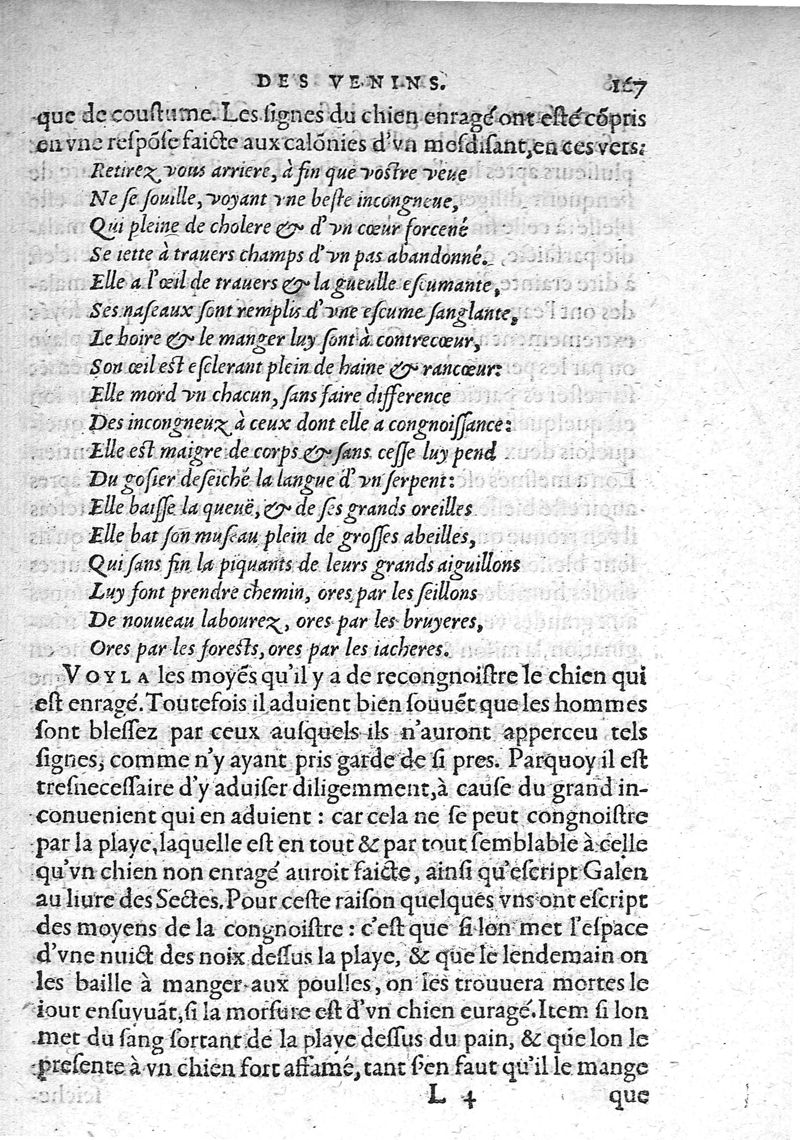 DES VENINS. 167
que de couſtume. Les ſignes du chien enragé ont eſté cõpris
en vne reſpõſe faicte aux calõnies d'vn meſdiſant, en ces vers:
Retirez vous arriere, à fin que voſtre veue
Ne ſe ſouille, voyant vne beſte incongneue,
Qui pleine de cholere & d'vn cœur forcené
Se iette à trauers champs d'vn pas abandonné.
Elle a l'œil de trauers & la gueulle eſcumante,
Ses naſeaux ſont remplis d'vne eſcume ſanglante,
Le boire & le manger luy ſont à contrecœur,
Son œil eſt eſclerant plein de haine & rancœur:
Elle mord vn chacun, ſans faire difference
Des incongneuz à ceux dont elle a congnoiſſance:
Elle eſt maigre de corps & ſans ceſſe luy pend
Du goſier deſeiché la langue d'vn ſerpent:
Elle baiſſe la queuë, & de ſes grands oreilles
Elle bat ſon muſeau plein de groſſes abeilles,
Qui ſans fin la piquants de leurs grands aiguillons
Luy font prendre chemin, ores par les ſeillons
De nouueau labourez, ores par les bruyeres,
Ores par les foreſts, ores par les iacheres.
VOYLA les moyẽs qu'il y a de recongnoiſtre le chien qui
eſt enragé. Toutefois il aduient bien ſouuẽt que les hommes
ſont bleſſez par ceux auſquels ils n'auront apperceu tels
ſignes, comme n'y ayant pris garde de ſi pres. Parquoy il eſt
treſneceſſaire d'y aduiſer diligemment, à cauſe du grand in-
conuenient qui en aduient : car cela ne ſe peut congnoiſtre
par la playe, laquelle eſt en tout & par tout ſemblable à celle
qu'vn chien non enragé auroit faicte, ainſi qu'eſcript Galen
au liure des Sectes. Pour ceſte raiſon quelques vns ont eſcript
des moyens de la congnoiſtre : c'eſt que ſi lon met l'eſpace
d'vne nuict des noix deſſus la playe, & que le lendemain on
les baille à manger aux poulles, on les trouuera mortes le
iour enſuyuãt, ſi la morſure eſt d'vn chien euragé. Item ſi lon
met du ſang ſortant de la playe deſſus du pain, & que lon le
preſente à vn chien fort affamé, tant s'en faut qu'il le mange
L 4 que